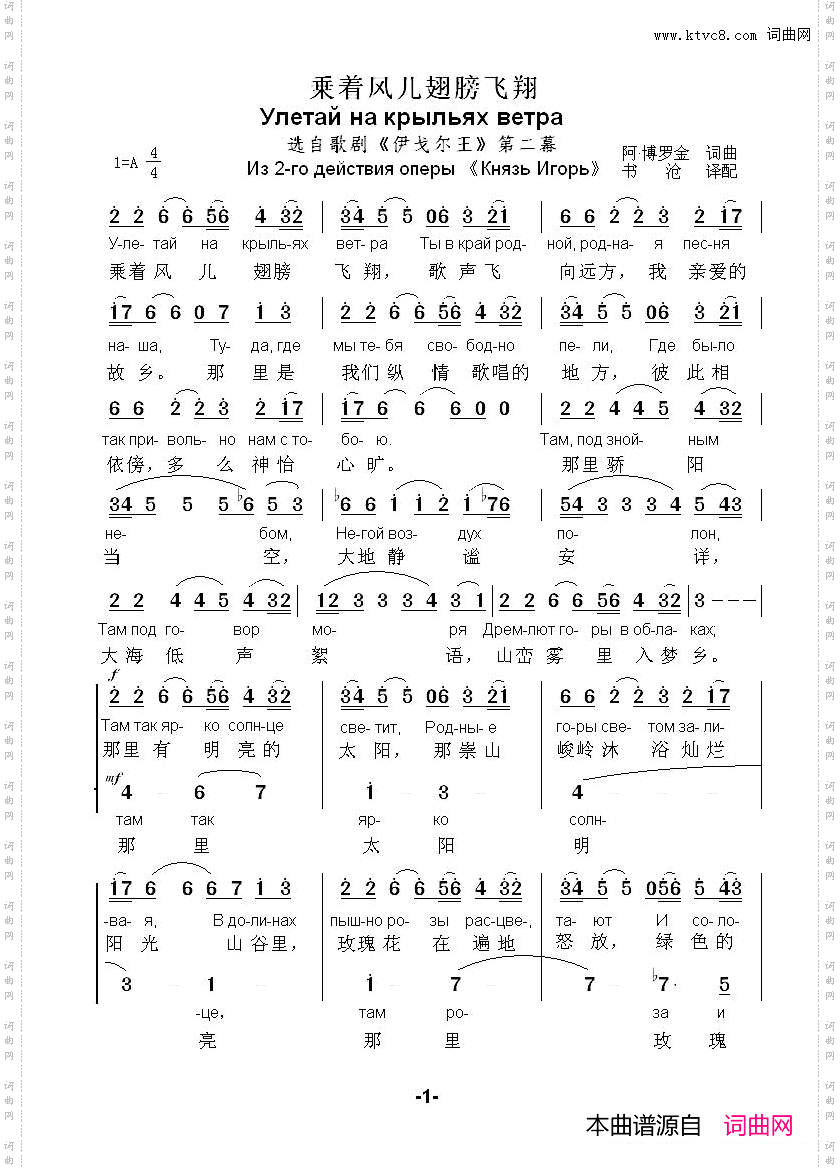 www.ktvc8.com 词曲网
乘着风儿翅膀飞翔
Улетай на крыльях ветра
选自歌剧《伊戈尔王》第二幕
1=A 4/4
Из 2-го действия оперы 《Князь Игорь》
阿·博罗金 词曲
书 沧 译配
2 2 6 6 56 4 32 | 34 5 5 06 3 21 | 6 6 2 2 3 2 17 |
У-ле- тай на крыль-ях вет- ра Ты в край род- ной, род-на- я пес-ня
乘着风 儿 翅膀 飞 翔， 歌 声飞 向远方， 我 亲爱的
17 6 6 0 7 1 3 | 2 2 6 6 56 4 32 | 34 5 5 06 3 21 |
на- ша, Ту- да, где мы те- бя сво- бод-но пе- ли, Где бы-ло
故 乡。 那 里是 我们纵 情 歌唱的 地 方， 彼 此相
6 6 2 2 3 2 17 | 17 6 6 6 0 0 | 2 2 4 4 5 4 32 |
так при- воль- но нам с то- бо- ю. Там, под зной- ным
依傍，多 么 神怡 心 旷。 那里骄 阳
34 5 5 5 ♭6 5 3 | ♭6 6 1 1 2 1 ♭76 | 54 3 3 3 4 5 43 |
не- бом, Не-гой воз- дух по- лон,
当 空， 大地静 谧 安 详，
2 2 4 4 5 4 32 | 12 3 3 3 4 3 1 | 2 2 6 6 56 4 32 | 3 - - - |
Там под го- вор мо- ря Дрем-лют го- ры в об-ла- ках;
大海 低 声 絮 语， 山峦 雾 里 入 梦 乡。
f
2 2 6 6 56 4 32 | 34 5 5 06 3 21 | 6 6 2 2 3 2 17 |
Там так яр- ко солн-це све- тит, Род-ны- е го-ры све- том за-ли-
那里 有 明 亮的 太 阳， 那崇山 峻岭沐 浴 灿烂
mf
4 - 6 7 | 1 - 3 - | 4 - - - |
там так яр- ко солн-
那 里 太 阳 明
17 6 6 6 7 1 3 | 2 2 6 6 56 4 32 | 34 5 5 056 5 43 |
-ва- я, В до-ли-нах пыш-но ро- зы рас-цве-, та- ют И со-ло-
阳 光 山谷里， 玫瑰花 在 遍地 怒 放， 绿 色的
3 - 1 - | 1 - 7 7 | 7 - ♭7· 5 |
-це, там ро- за и
亮 那 里 玫 瑰
-1-
本曲谱源自 词曲网